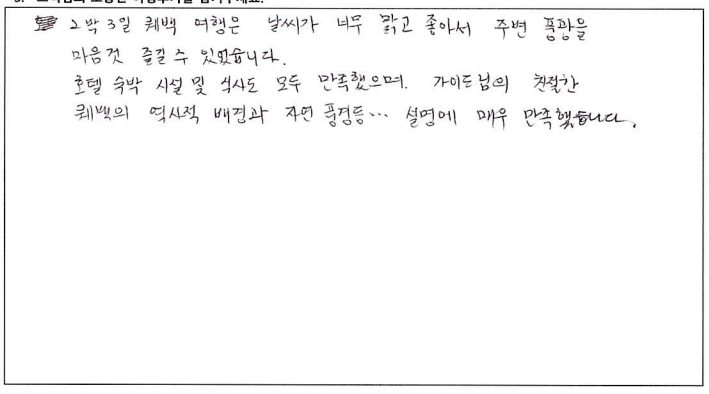 2박 3일 퀘백 여행은 날씨가 너무 맑고 좋아서 주변 풍광을
마음껏 즐길 수 있었습니다.
호텔 숙박 시설 및 식사도 모두 만족했으며. 가이드님의 친절한
퀘백의 역사적 배경과 자연 풍경등... 설명에 매우 만족했습니다.